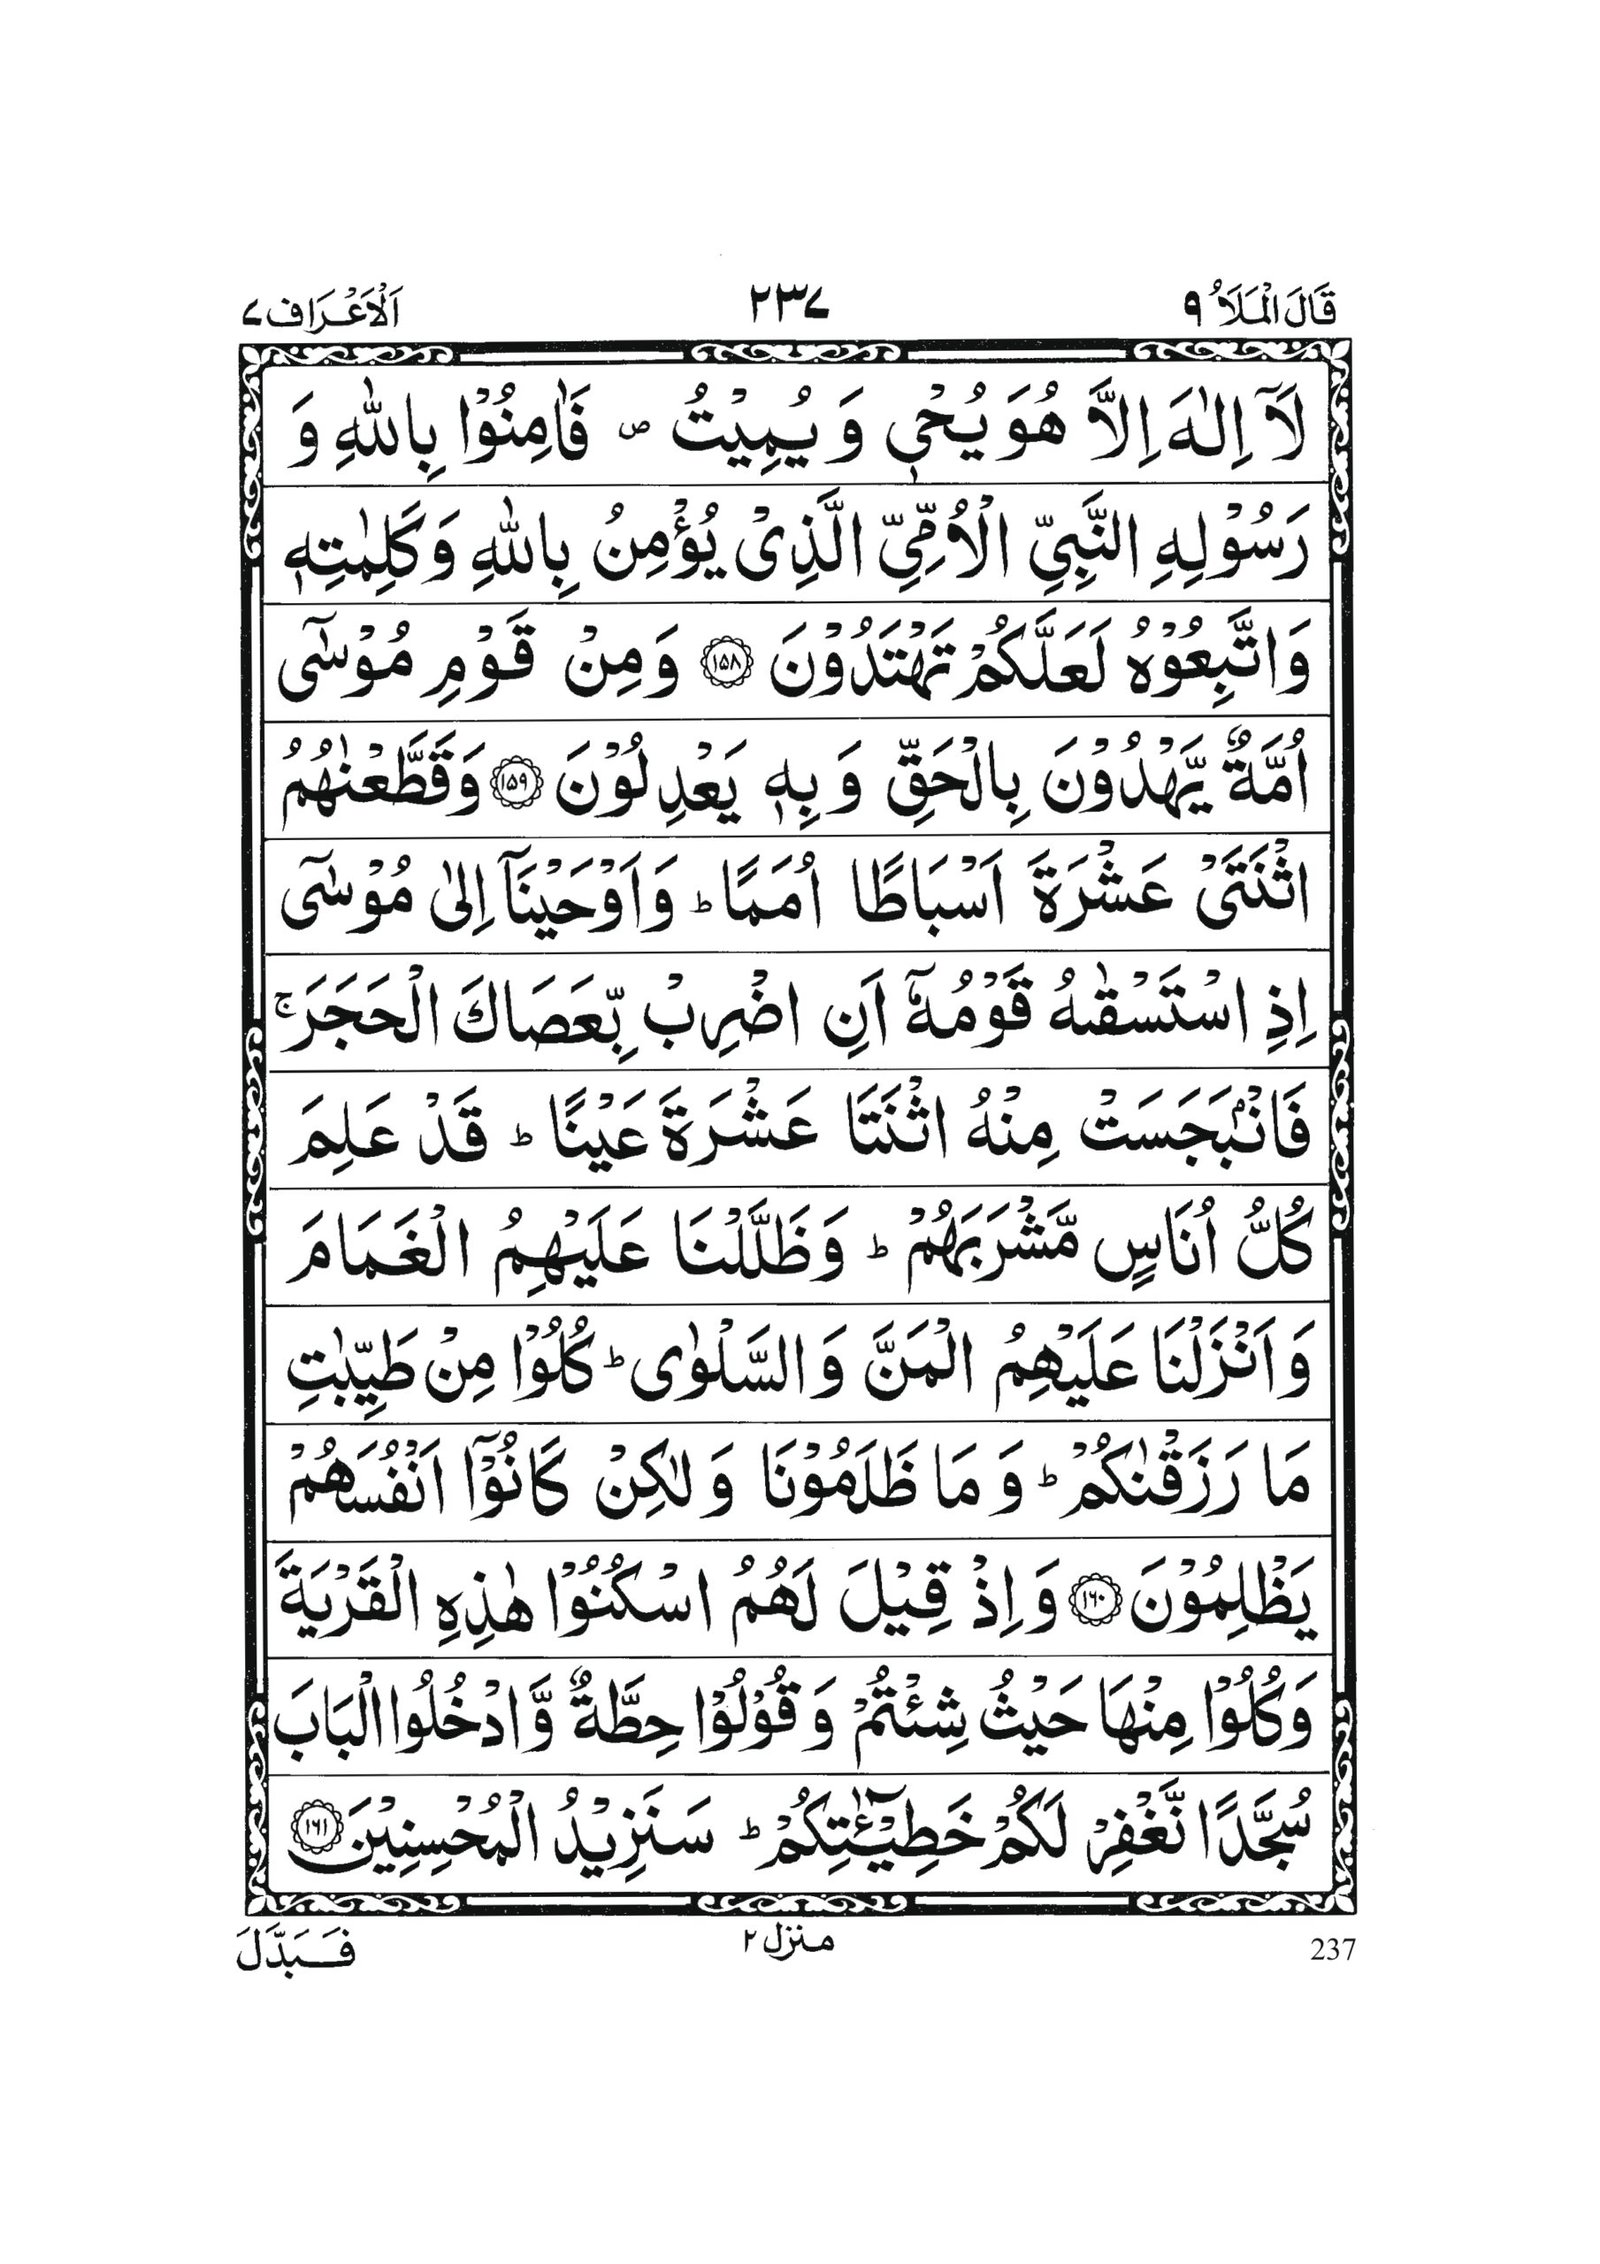 قَالَ الْمَلَاُ ٩
٢٣٧
اَلْاَعْرَاف ٧
لَاۤ اِلٰهَ اِلَّا هُوَ يُحْىٖ وَ يُمِيْتُ ۪ فَاٰمِنُوْا بِاللّٰهِ وَ
رَسُوْلِهِ النَّبِىِّ الْاُمِّىِّ الَّذِىْ يُؤْمِنُ بِاللّٰهِ وَكَلِمٰتِهٖ
وَاتَّبِعُوْهُ لَعَلَّكُمْ تَهْتَدُوْنَ ﴿١٥٨﴾ وَمِنْ قَوْمِ مُوْسٰٓى
اُمَّةٌ يَّهْدُوْنَ بِالْحَقِّ وَ بِهٖ يَعْدِلُوْنَ ﴿١٥٩﴾ وَقَطَّعْنٰهُمُ
اثْنَتَىْ عَشْرَةَ اَسْبَاطًا اُمَمًا ؕ وَاَوْحَيْنَاۤ اِلٰى مُوْسٰٓى
اِذِ اسْتَسْقٰىهُ قَوْمُهٗۤ اَنِ اضْرِبْ بِّعَصَاكَ الْحَجَرَ ۚ
فَانْۢبَجَسَتْ مِنْهُ اثْنَتَا عَشْرَةَ عَيْنًا ؕ قَدْ عَلِمَ
كُلُّ اُنَاسٍ مَّشْرَبَهُمْ ؕ وَظَلَّلْنَا عَلَيْهِمُ الْغَمَامَ
وَاَنْزَلْنَا عَلَيْهِمُ الْمَنَّ وَالسَّلْوٰى ؕ كُلُوْا مِنْ طَيِّبٰتِ
مَا رَزَقْنٰكُمْ ؕ وَ مَا ظَلَمُوْنَا وَلٰكِنْ كَانُوْۤا اَنْفُسَهُمْ
يَظْلِمُوْنَ ﴿١٦٠﴾ وَ اِذْ قِيْلَ لَهُمُ اسْكُنُوْا هٰذِهِ الْقَرْيَةَ
وَكُلُوْا مِنْهَا حَيْثُ شِئْتُمْ وَ قُوْلُوْا حِطَّةٌ وَّادْخُلُوا الْبَابَ
سُجَّدًا نَّغْفِرْ لَكُمْ خَطِيْٓـٰٔتِكُمْ ؕ سَنَزِيْدُ الْمُحْسِنِيْنَ ﴿١٦١﴾
237
منزل ٢
فَبَدَّلَ